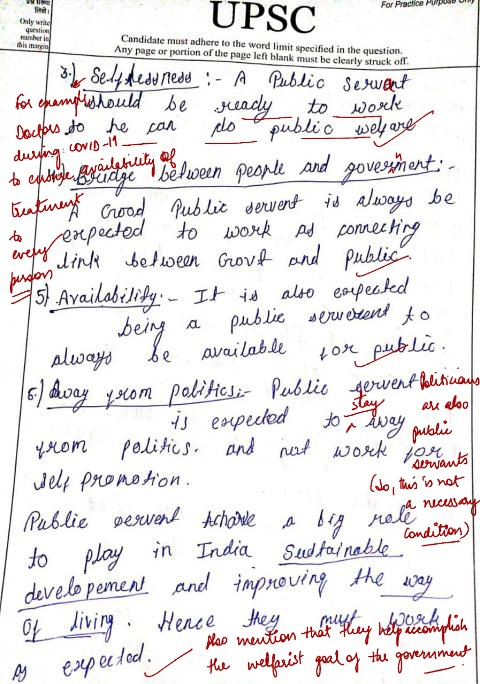 UPSC
For Practice Purpose Only
Only write
question
number in
this margin
Candidate must adhere to the word limit specified in the question.
Any page or portion of the page left blank must be clearly struck off.
3.) Selflessness :- A Public servant
should be ready to work
so he can do public welfare
For example
Doctors
during covid-19
to ensure availability of
treatment
to
every
person
Bridge between people and government:-
A Good Public servent is always be
expected to work as connecting
link between Govt and Public.
5) Availability:- It is also expected
being a public serverent to
always be available for public.
6.) Away from politics:- Public servent
is expected to stay away
from politics. and not work for
self promotion.
Politicians
are also
public
servants
(So, this is not
a necessary
condition)
Public servent have a big role
to play in India Sustainable
developement and improving the way
of living. Hence they must work
as expected.
Also mention that they help accomplish
the welfarist goal of the government